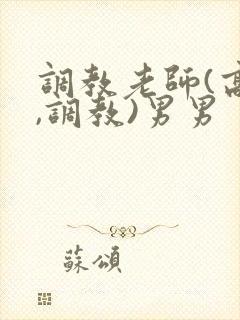 調教老師(高
,調教)男男
蘇頌